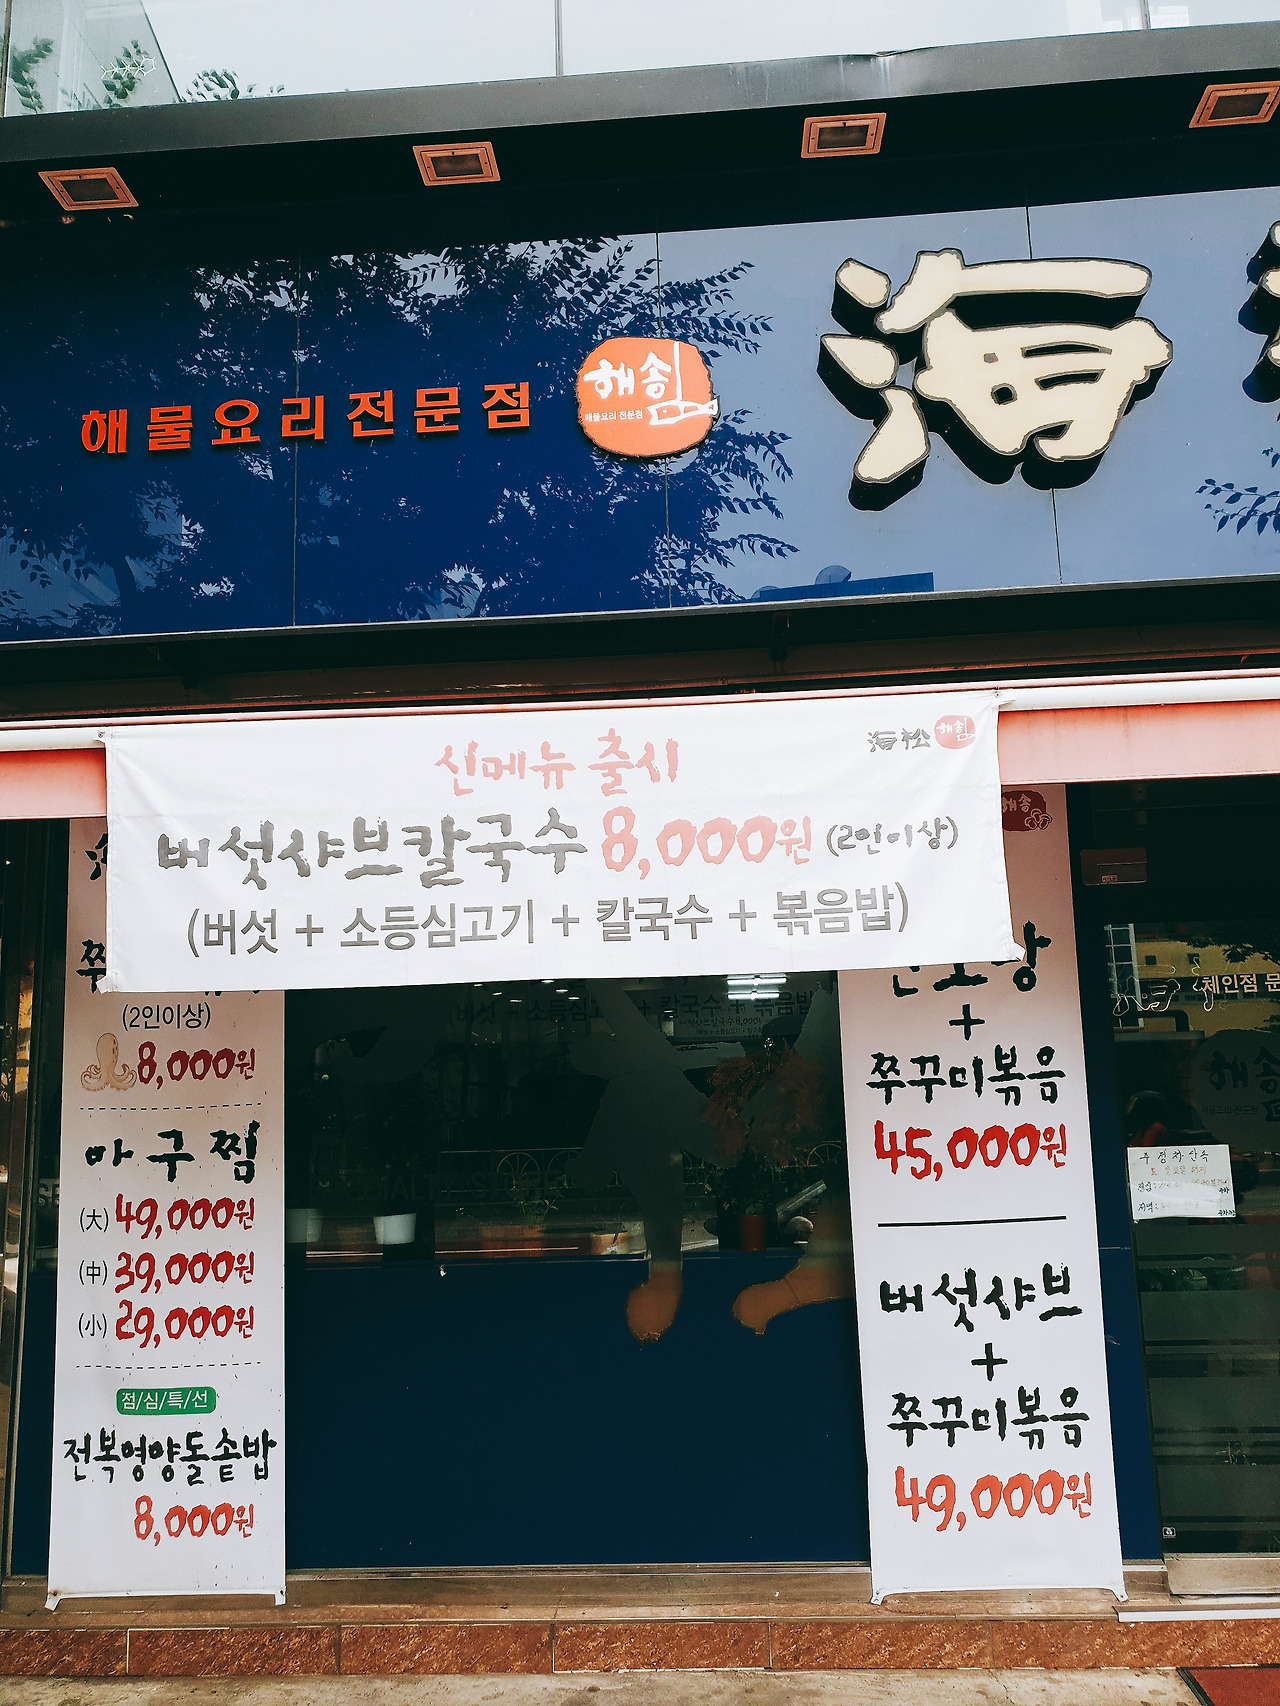 해물요리전문점
해송
해물요리 전문점
海
海松
해송
신메뉴 출시
버섯샤브칼국수 8,000원 (2인이상)
(버섯 + 소등심고기 + 칼국수 + 볶음밥)
(2인이상)
8,000원
아구찜
(大) 49,000원
(中) 39,000원
(小) 29,000원
점/심/특/선
전복영양돌솥밥
8,000원
해송
+
쭈꾸미볶음
45,000원
버섯샤브
+
쭈꾸미볶음
49,000원
체인점 문
해송